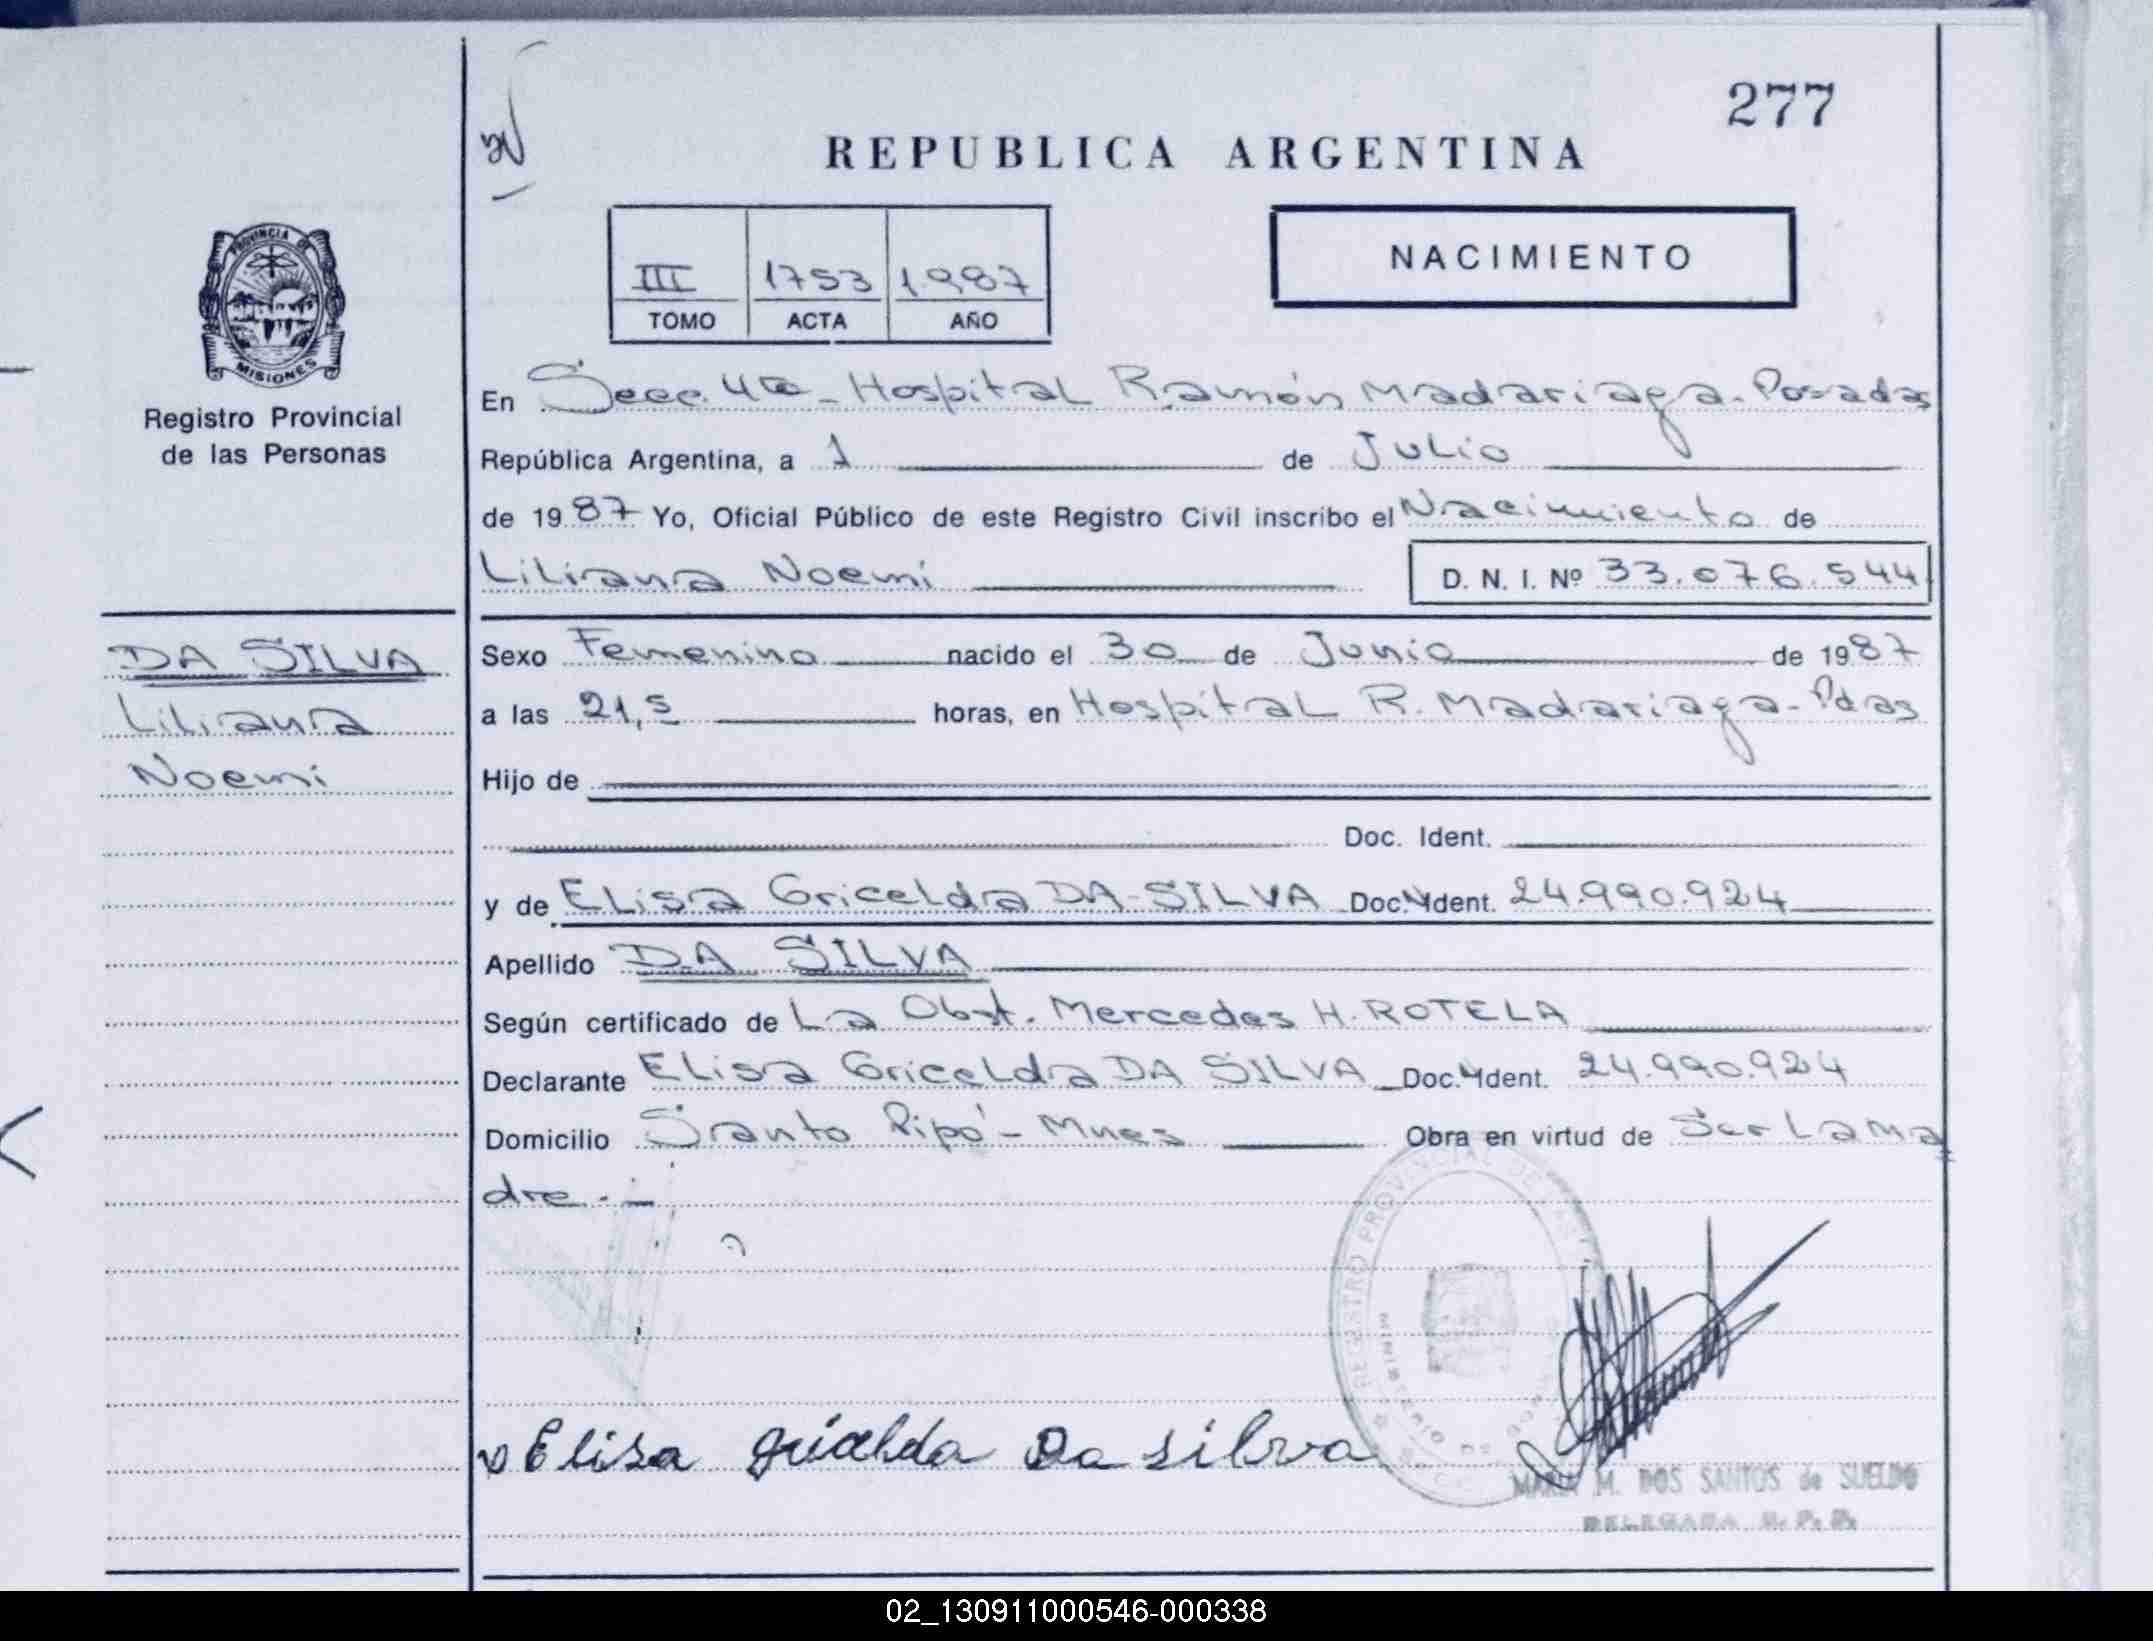 277
REPUBLICA ARGENTINA
III 1753 1987
TOMO ACTA AÑO
NACIMIENTO
PROVINCIA DE
MISIONES
Registro Provincial
de las Personas
En Secc. 4ta - Hospital Ramón Madariaga - Posadas
República Argentina, a 1 de Julio
de 1987 Yo, Oficial Público de este Registro Civil inscribo el Nacimiento de
Liliana Noemi D. N. I. Nº 33.076.544
DA SILVA
Liliana
Noemi
Sexo Femenino nacido el 30 de Junio de 1987
a las 21,5 horas, en Hospital R. Madariaga - Pdas
Hijo de
Doc. Ident.
y de Elisa Gricelda DA-SILVA Doc. Ident. 24.990.924
Apellido DA SILVA
Según certificado de La Obst. Mercedes H. ROTELA
Declarante Elisa Gricelda DA SILVA Doc. Ident. 24.990.924
Domicilio Santo Pipó - Mnes Obra en virtud de Ser La Ma
dre.-
REGISTRO PROVINCIAL DE LAS
Elisa Gricelda Da silva
MARIA M. DOS SANTOS de SUELDO
DELEGADA R. P. P.
02_130911000546-000338